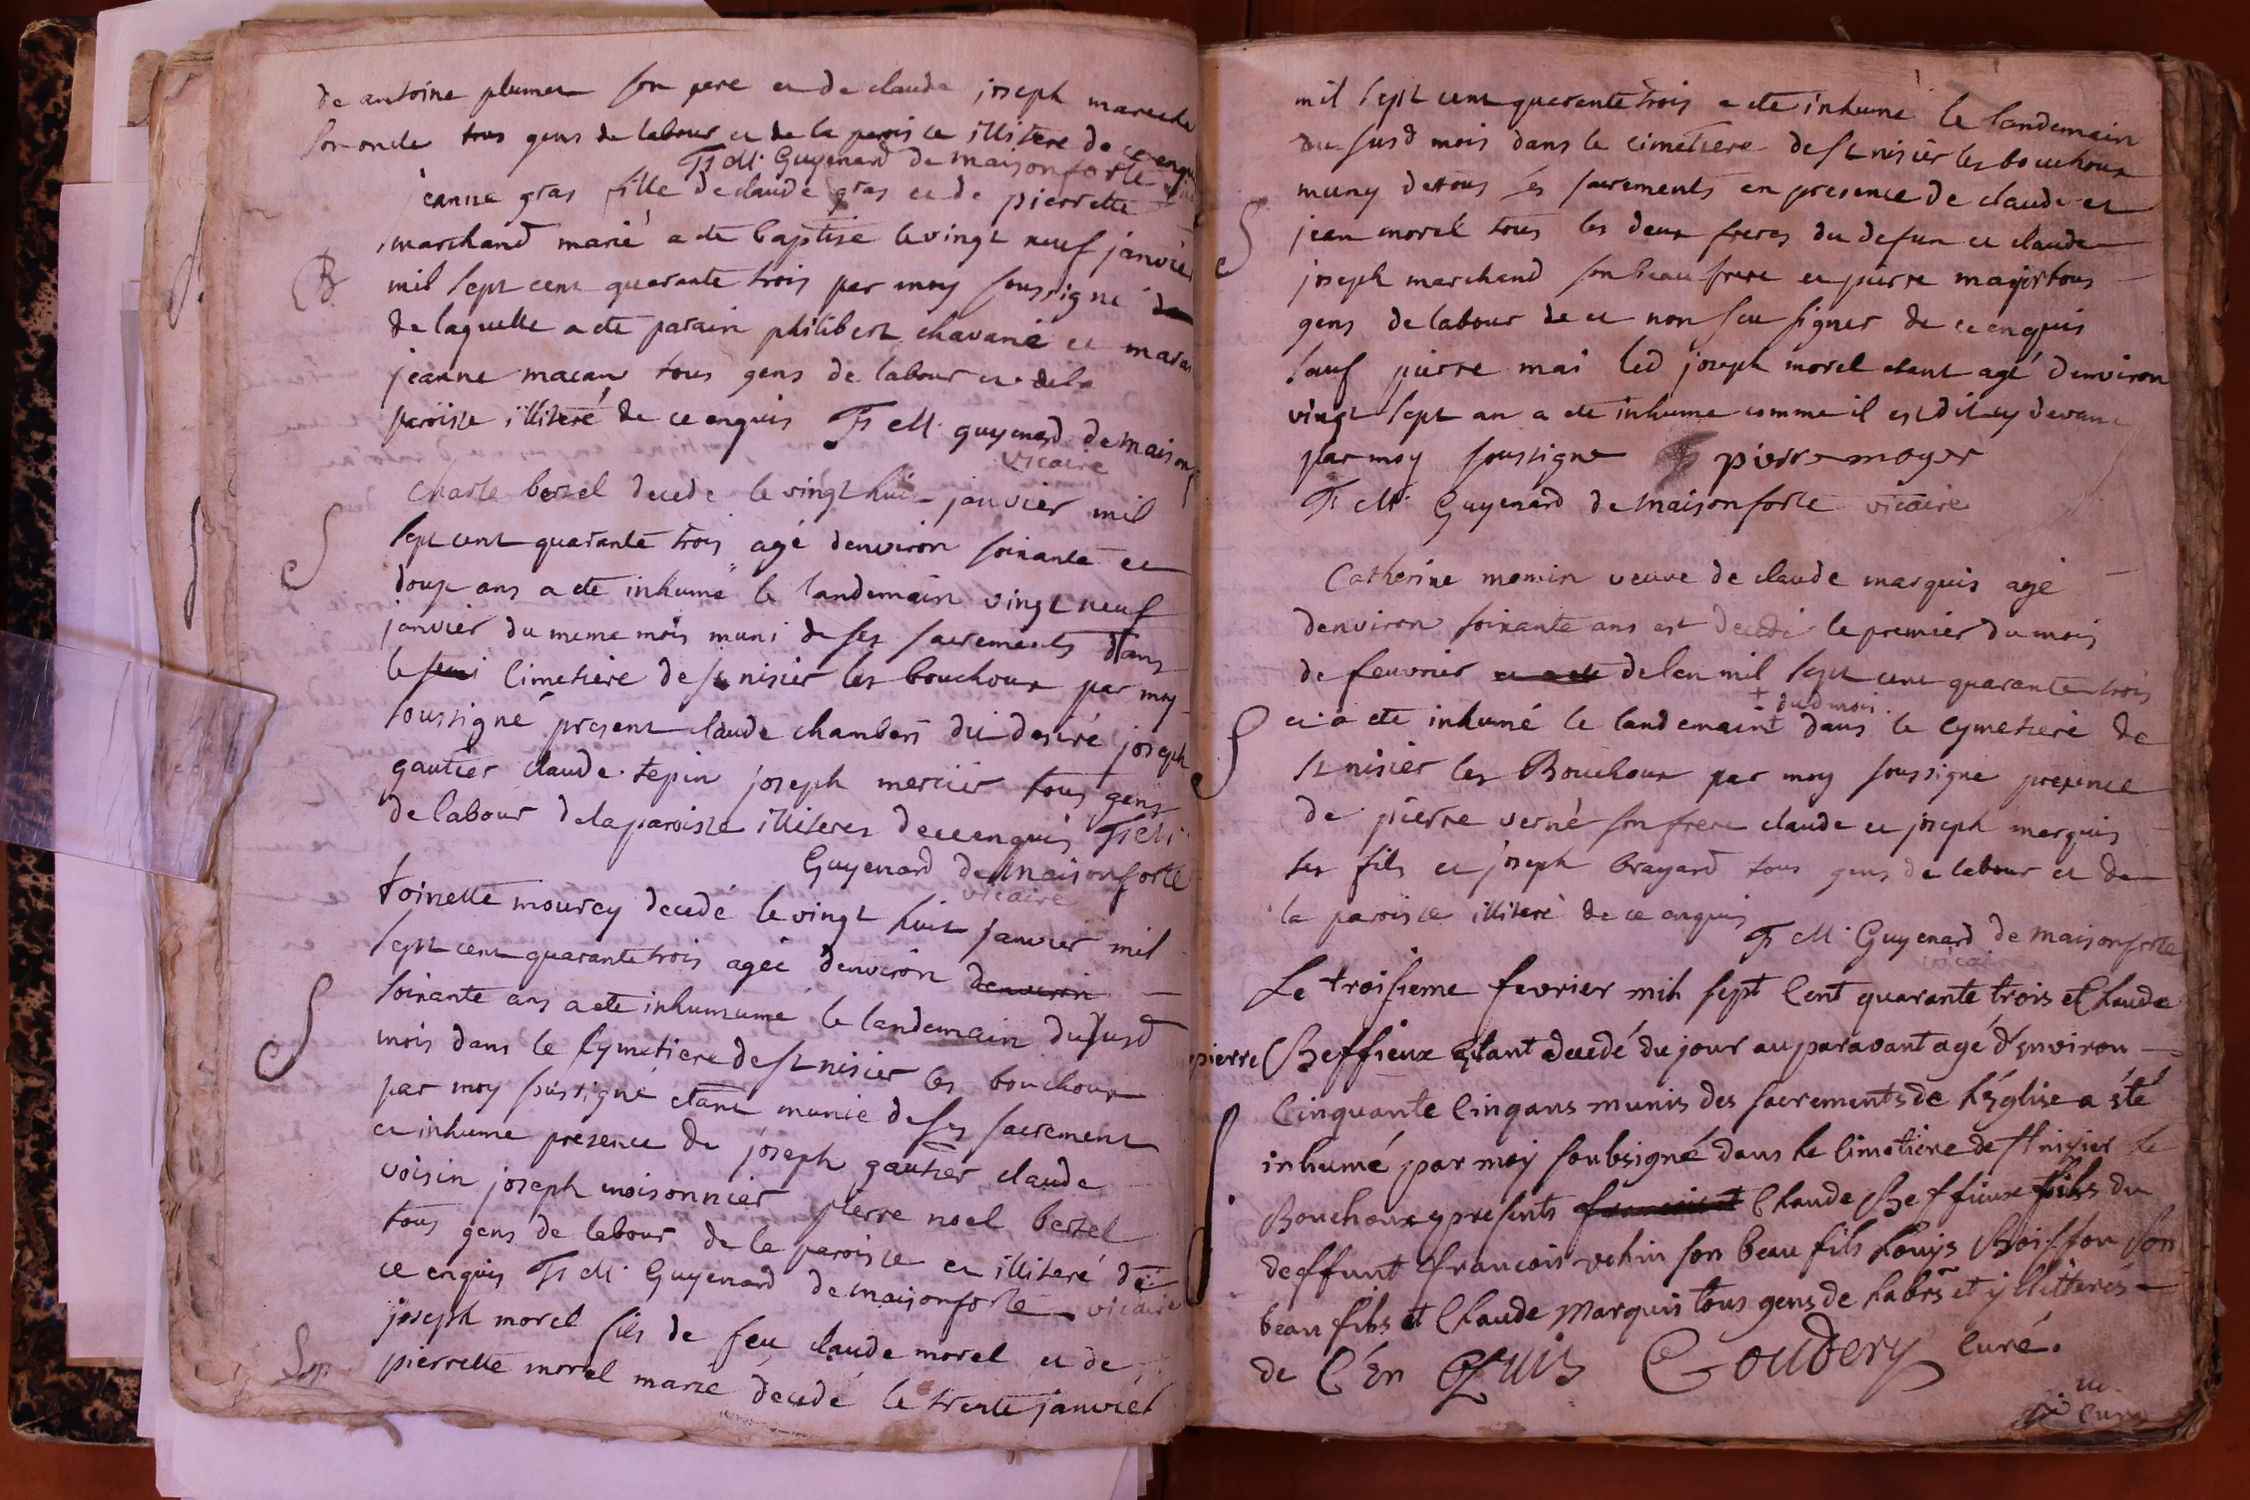 de antoine plumet son pere et de claude joseph marecha
son oncle tous gens de labour et de la paroisse illitere de ce enquis
Fs M. Guyenard de maisonforte
jeanne gras fille de claude gras et de pierrette
marchand marié a ete baptisé le vingt neuf janvier
B
mil sept cent quarante trois par moy soussigné
de laquelle a ete parain philibert chavane et marai
jeanne macau tous gens de labour et dela
paroisse illiteré de ce enquis Fs M. guyenard de maison
vicaire
Charle bertel decede le vingt huit janvier mil
S
sept cent quarante trois agé denviron soixante et
douze ans a ete inhumé le landemain vingt neuf
janvier du meme mois muni de ses sacrements dans
le cimetiere de st nisier les bouchoux par moy
soussigné present claude chambers dit desiré joseph
gautier claude tepin joseph mercier tous gens
de labour dela paroisse illiteres de ce enquis Fs M.
Guyenard de maisonforte
vicaire
toinette mourey decedé le vingt huit janvier mil
sept cent quarante trois agée denviron denviron
S
soixante ans a ete inhumumé le landemain du susd
mois dans le Cymetiere de st nisier les bouchoux
par moy sussigné etant munie de ses sacrement
et inhume presence de joseph gautier claude
voisin joseph moisonnier pierre noel bertel
tous gens de labour de la paroisse et illiteré de
ce enquis Fs M. Guyenard de maisonforte vicaire
joseph morel fils de feu claude morel et de
Sep
pierrette morel marié decedé le trente janvier
mil sept cent quarante trois a ete inhumé le landemain
du susd mois dans le cimetiere de st nisier les bouchoux
muny de tous ses sacrements en presence de claude et
S
jean morel tous les deux freres du defun et claude
joseph marchand son beau frere et pierre majer tous
gens de labour de et non seu signer de ce enquis
sauf pierre mai led joseph morel etant agé denviron
vingt sept an a ete inhume comme il est dit cy devant
par moy soussigne pierre moyer
Fs M. Guyenard de maisonforte vicaire
Catherine momin veuve de claude marquis agé
denviron soixante ans est decedé le premier du mois
de feuvrier et a ete de lan mil sept cent quarante trois
+ dud mois
S
et a ete inhumé le landemain + dans le Cymetiere de
st nisier les Bouchoux par moy soussigne presence
de pierre verné son frere claude et joseph marquis
ses fils et joseph brayard tous gens de labour et de
la paroisse illiteré de ce enquis
Fs M. Guyenard de maisonforte
vicaire
Le troisieme fevrier mil sept Cent quarante trois Claude
pierre Beffieux Etant decedé du jour auparavant agé d'Environ
Cinquante Cinq ans munis des sacrements de l'Eglise a été
S
inhumé par moy soubsigné dans le Cimetiere de st nisier le
Bouchoux presents francois et Claude Beffieux fils du
deffunt francois velin son beau fils Louys Boisson son
beau fils et Claude Marquis tous gens de labrs et yllitterés
de C'En Quis Goudery Curé.